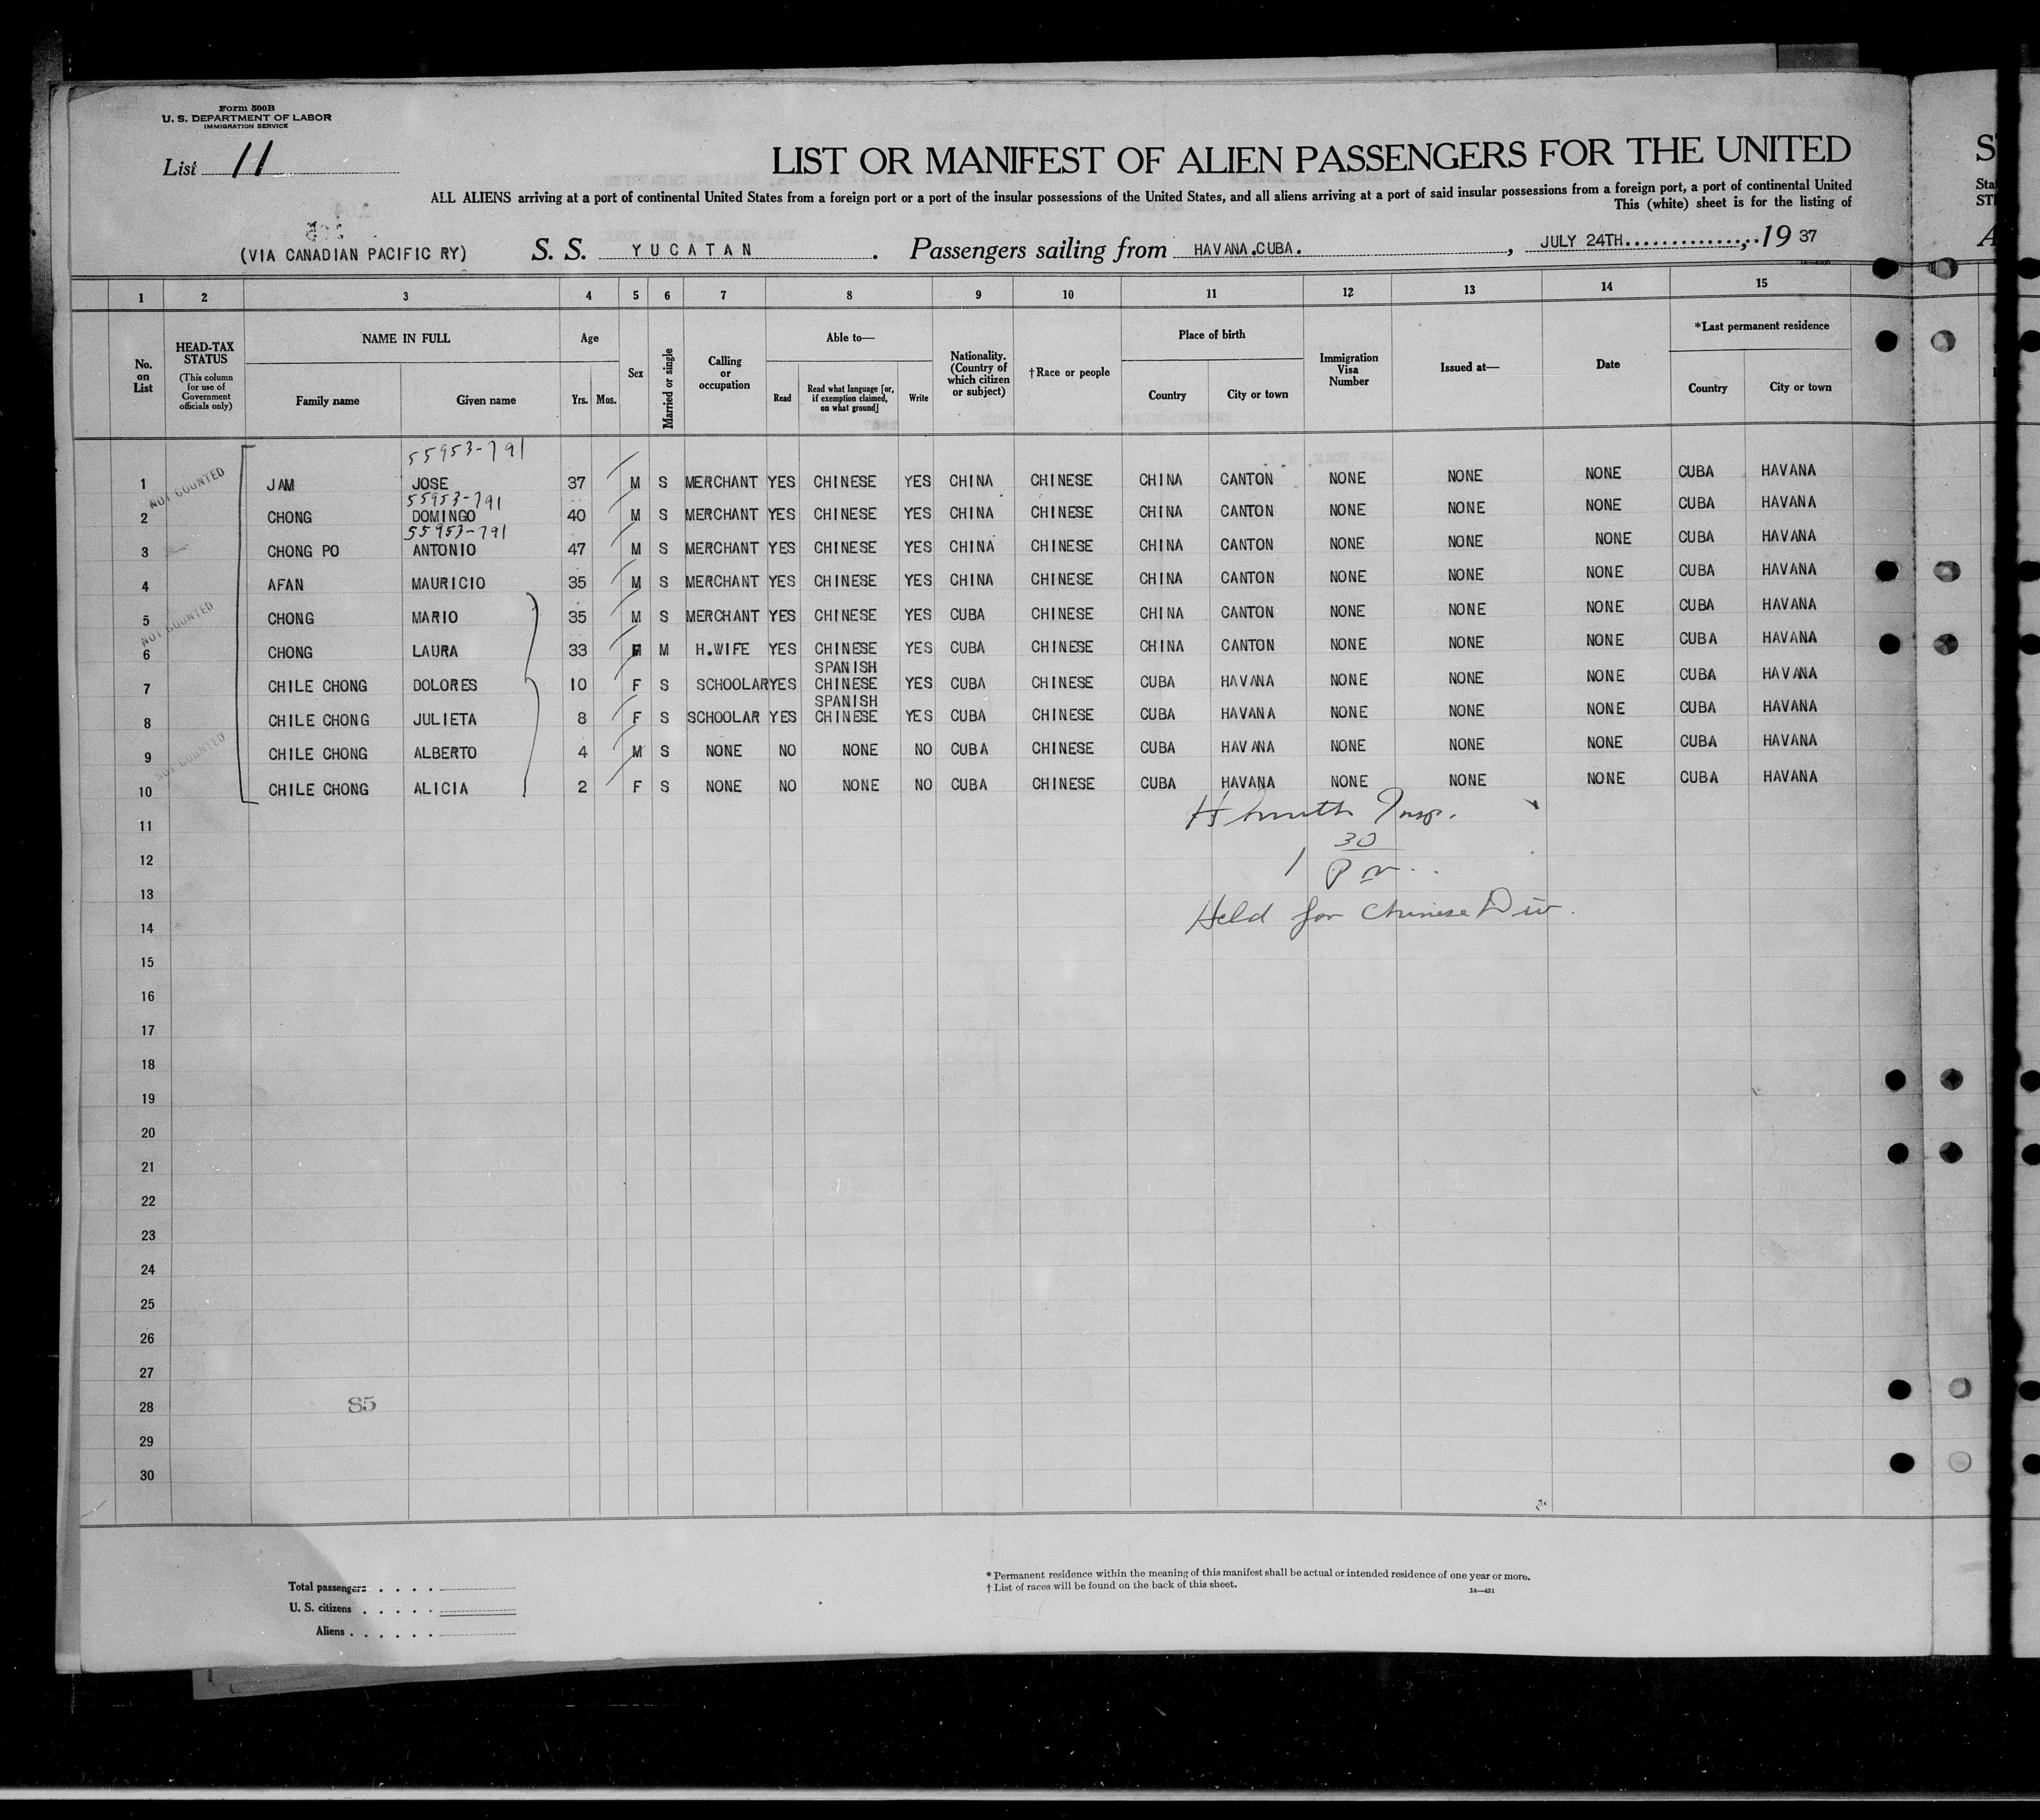 Form 500B
U. S. DEPARTMENT OF LABOR
IMMIGRATION SERVICE
List 11
LIST OR MANIFEST OF ALIEN PASSENGERS FOR THE UNITED
ALL ALIENS arriving at a port of continental United States from a foreign port or a port of the insular possessions of the United States, and all aliens arriving at a port of said insular possessions from a foreign port, a port of continental United
This (white) sheet is for the listing of
(VIA CANADIAN PACIFIC RY) S. S. YUCATAN. Passengers sailing from HAVANA.CUBA., JULY 24TH..............,..19 37
1 2 3 4 5 6 7 8 9 10 11 12 13 14 15
No. on List
HEAD-TAX STATUS
(This column for use of Government officials only)
NAME IN FULL
Family name Given name
Age
Yrs. Mos.
Sex
Married or single
Calling or occupation
Able to—
Read Read what language [or, if exemption claimed, on what ground] Write
Nationality. (Country of which citizen or subject)
†Race or people
Place of birth
Country City or town
Immigration Visa Number
Issued at—
Date
*Last permanent residence
Country City or town
55953-791
1 JAM JOSE 37 M S MERCHANT YES CHINESE YES CHINA CHINESE CHINA CANTON NONE NONE NONE CUBA HAVANA
NOT COUNTED
55953-791
2 CHONG DOMINGO 40 M S MERCHANT YES CHINESE YES CHINA CHINESE CHINA CANTON NONE NONE NONE CUBA HAVANA
55953-791
3 CHONG PO ANTONIO 47 M S MERCHANT YES CHINESE YES CHINA CHINESE CHINA CANTON NONE NONE NONE CUBA HAVANA
4 AFAN MAURICIO 35 M S MERCHANT YES CHINESE YES CHINA CHINESE CHINA CANTON NONE NONE NONE CUBA HAVANA
5 CHONG MARIO 35 M S MERCHANT YES CHINESE YES CUBA CHINESE CHINA CANTON NONE NONE NONE CUBA HAVANA
NOT COUNTED
6 CHONG LAURA 33 F M H.WIFE YES CHINESE YES CUBA CHINESE CHINA CANTON NONE NONE NONE CUBA HAVANA
SPANISH
7 CHILE CHONG DOLORES 10 F S SCHOOLAR YES CHINESE YES CUBA CHINESE CUBA HAVANA NONE NONE NONE CUBA HAVANA
SPANISH
8 CHILE CHONG JULIETA 8 F S SCHOOLAR YES CHINESE YES CUBA CHINESE CUBA HAVANA NONE NONE NONE CUBA HAVANA
9 CHILE CHONG ALBERTO 4 M S NONE NO NONE NO CUBA CHINESE CUBA HAVANA NONE NONE NONE CUBA HAVANA
NOT COUNTED
10 CHILE CHONG ALICIA 2 F S NONE NO NONE NO CUBA CHINESE CUBA HAVANA NONE NONE NONE CUBA HAVANA
Insp.
11
30
12
1 P m
13
Held for Chinese Div.
14
15
16
17
18
19
20
21
22
23
24
25
26
27
28
85
29
30
Total passengers
U. S. citizens
Aliens
* Permanent residence within the meaning of this manifest shall be actual or intended residence of one year or more.
† List of races will be found on the back of this sheet.
14—431